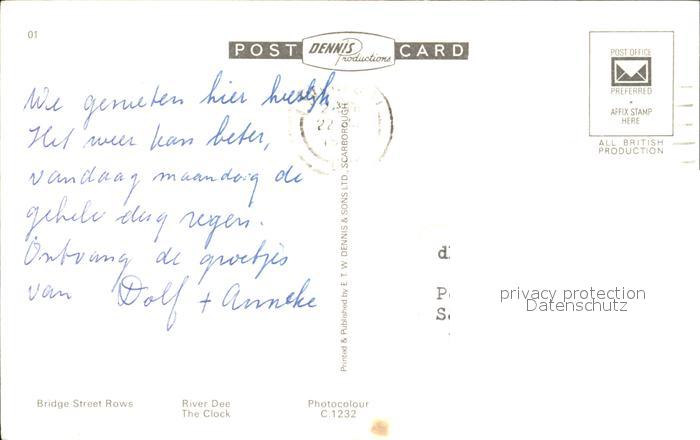 01
POST DENNIS Productions CARD
POST OFFICE
PREFERRED
AFFIX STAMP
HERE
ALL BRITISH
PRODUCTION
We genieten hier heerlijk
Het weer kan beter,
vandaag maandag de
gehele dag regen.
Ontvang de groetjes
van Dolf + Anneke
22
Printed & Published by E. T. W. DENNIS & SONS LTD., SCARBOROUGH
privacy protection
Datenschutz
Bridge Street Rows
River Dee
The Clock
Photocolour
C.1232